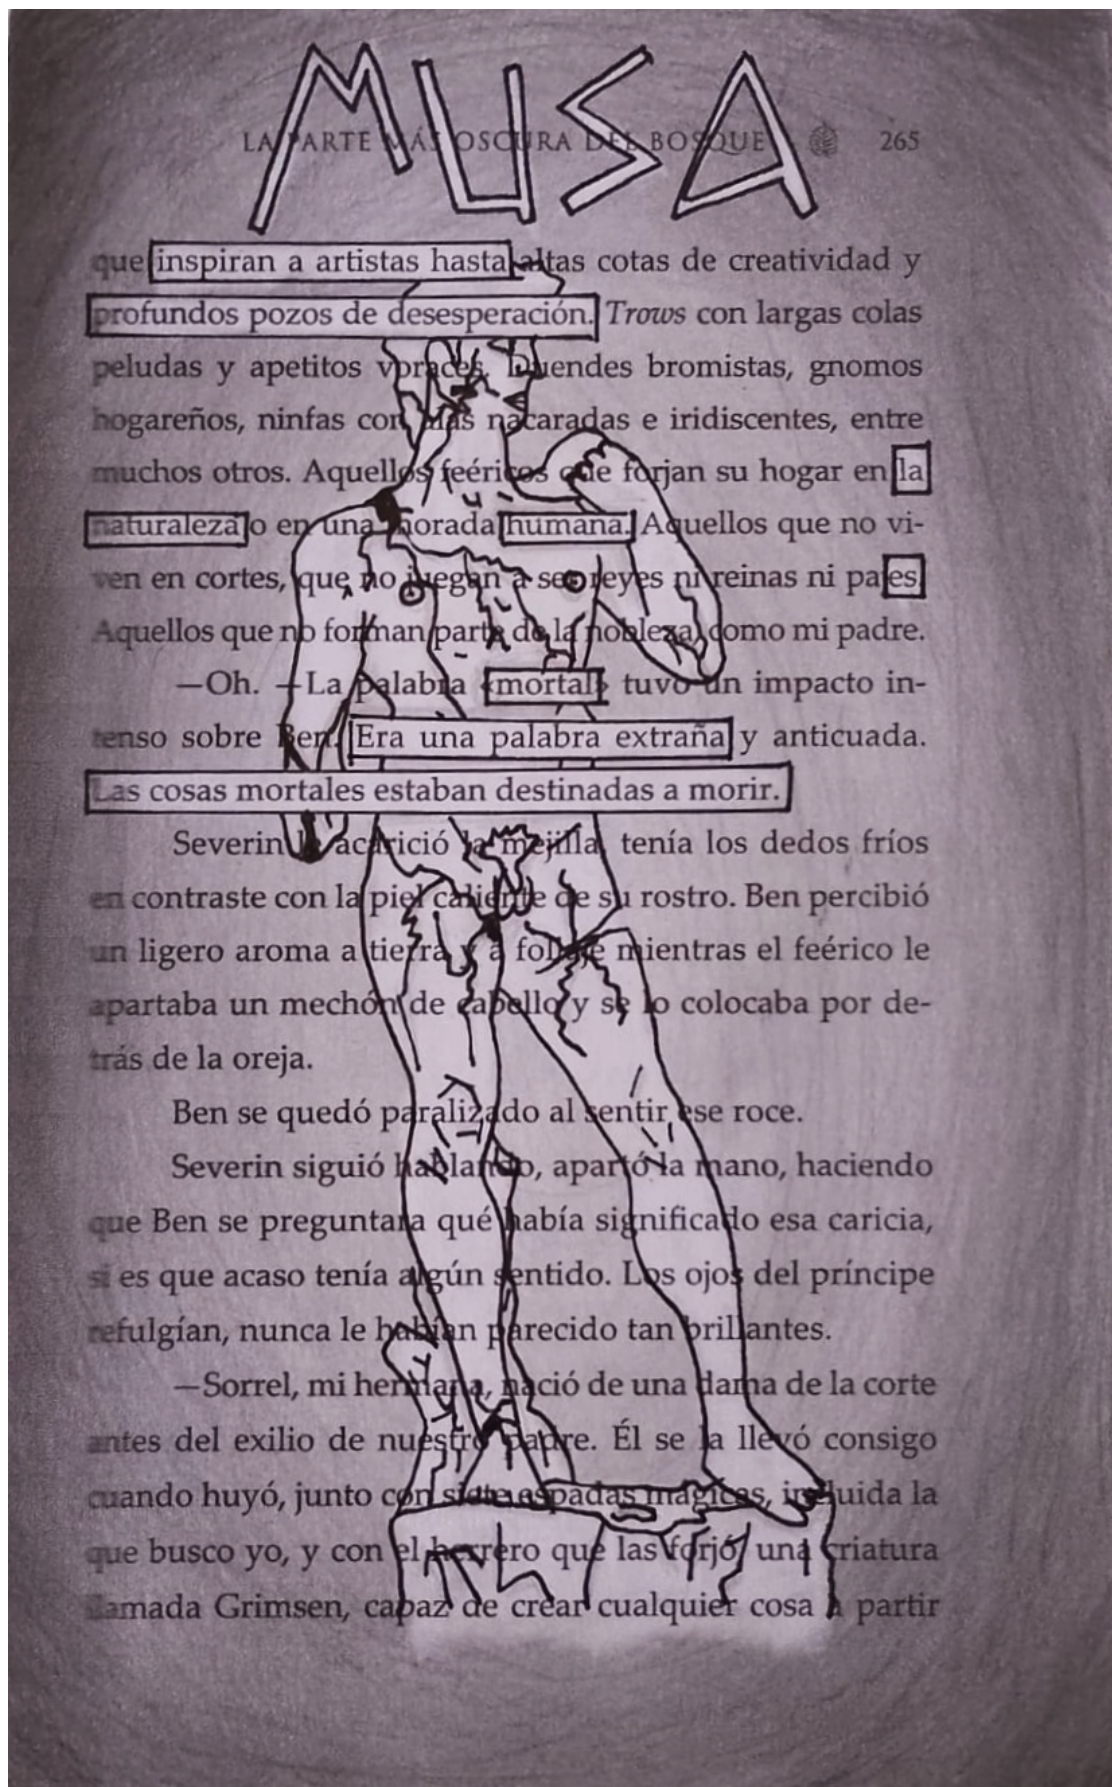 MUSA
LA PARTE MÁS OSCURA DEL BOSQUE 265
que inspiran a artistas hasta altas cotas de creatividad y
profundos pozos de desesperación. Trows con largas colas
peludas y apetitos voraces. Duendes bromistas, gnomos
hogareños, ninfas con alas nacaradas e iridiscentes, entre
muchos otros. Aquellos feéricos que forjan su hogar en la
naturaleza o en una morada humana. Aquellos que no vi-
ven en cortes, que no juegan a ser reyes ni reinas ni pajes.
Aquellos que no forman parte de la nobleza, como mi padre.
—Oh. —La palabra «mortal» tuvo un impacto in-
tenso sobre Ben. Era una palabra extraña y anticuada.
Las cosas mortales estaban destinadas a morir.
Severin le acarició la mejilla, tenía los dedos fríos
en contraste con la piel caliente de su rostro. Ben percibió
un ligero aroma a tierra y a follaje mientras el feérico le
apartaba un mechón de cabello y se lo colocaba por de-
trás de la oreja.
Ben se quedó paralizado al sentir ese roce.
Severin siguió hablando, apartó la mano, haciendo
que Ben se preguntara qué había significado esa caricia,
si es que acaso tenía algún sentido. Los ojos del príncipe
refulgían, nunca le habían parecido tan brillantes.
—Sorrel, mi hermana, nació de una dama de la corte
antes del exilio de nuestro padre. Él se la llevó consigo
cuando huyó, junto con siete espadas mágicas, incluida la
que busco yo, y con el herrero que las forjó, una criatura
llamada Grimsen, capaz de crear cualquier cosa a partir